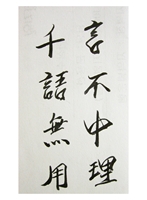 言不中理
千語無用